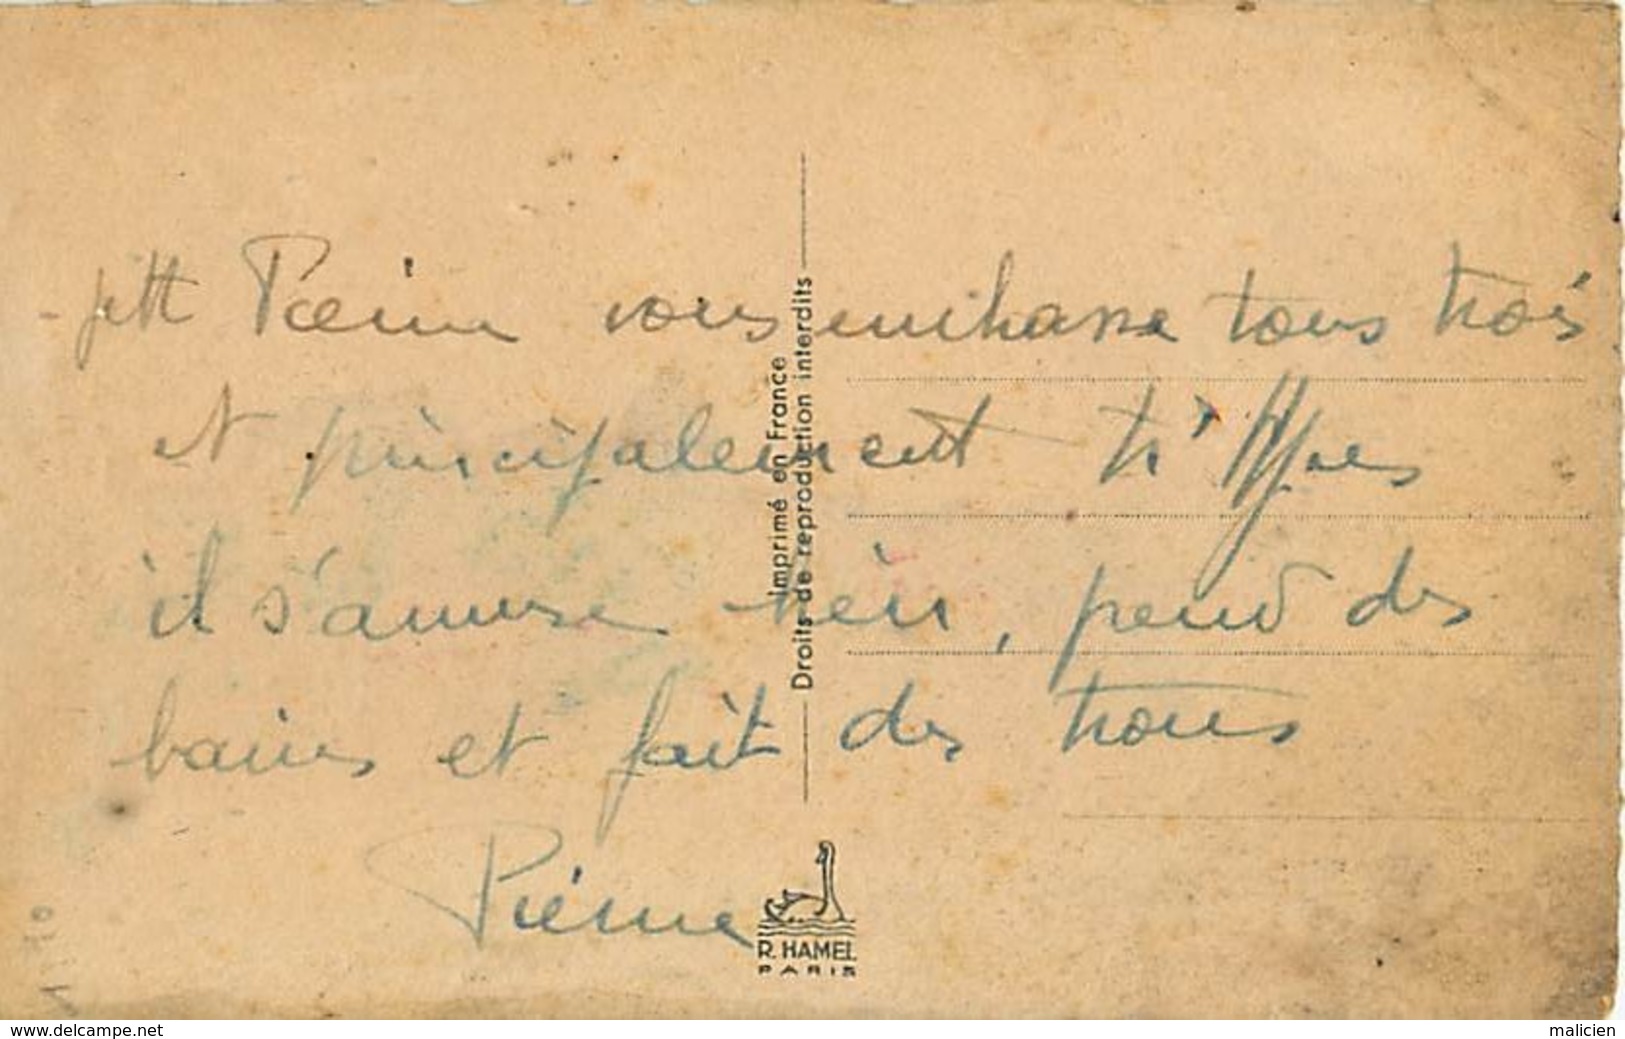 petit Pierre vous embrasse tous trois
et principalement
il s'amuse bien, prend des
bains et fait des trous
Pierre
Imprimé en France
Droits de reproduction interdits
R. HAMEL
PARIS
www.delcampe.net
malicien